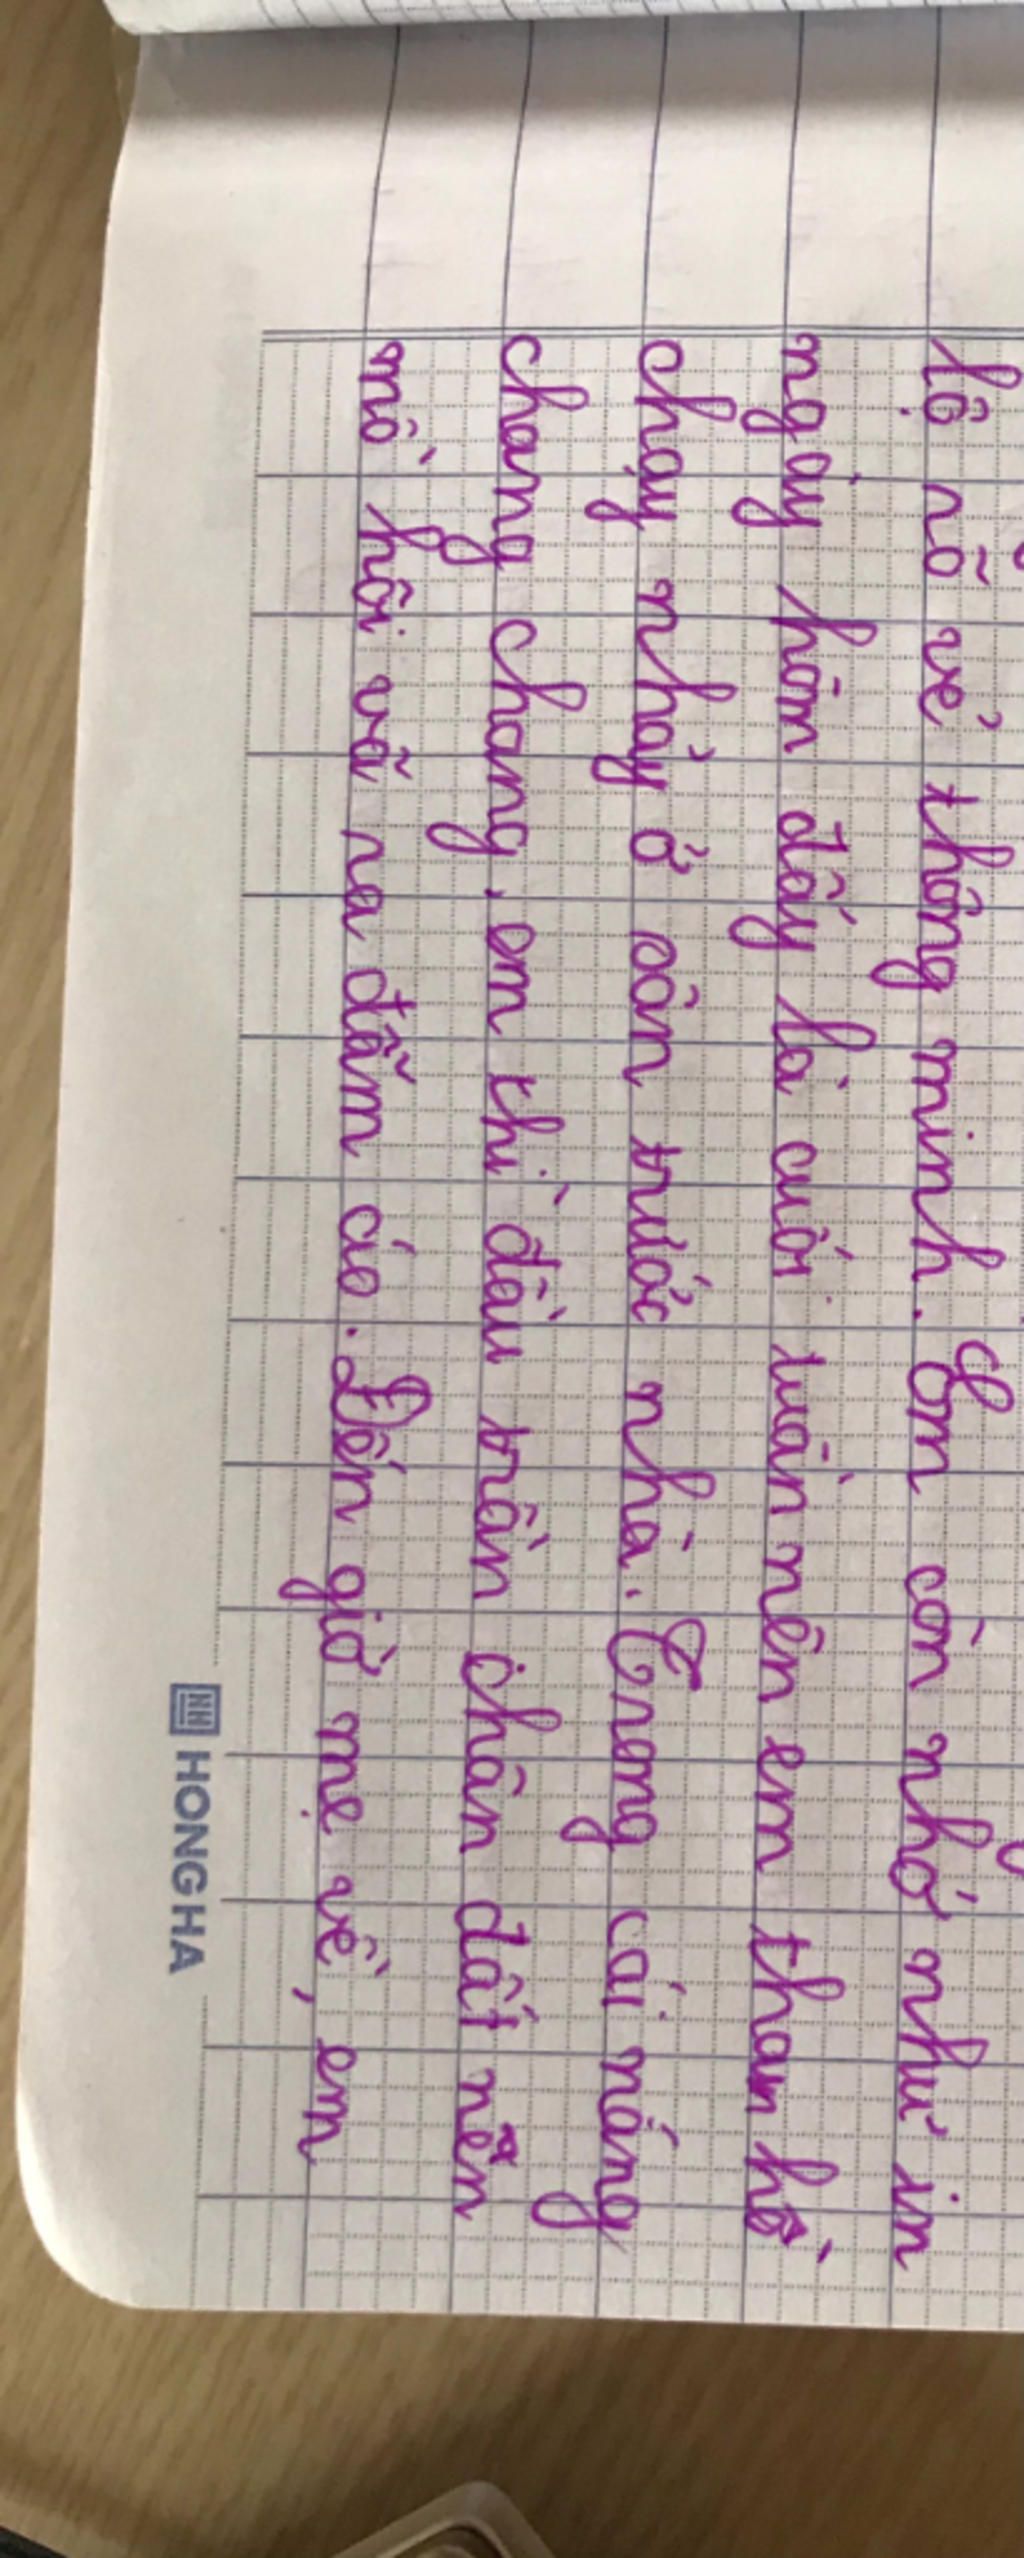 lộ rõ vẻ thông minh. Em còn nhớ như in
ngày hôm đấy là cuối tuần nên em tham hố
chạy nhảy ở sân trước nhà. Trong cái nắng
chang chang, em thì đầu trần chân đất nên
mồ hôi vã ra đẫm áo. Đến giờ mẹ về, em
HONG HA